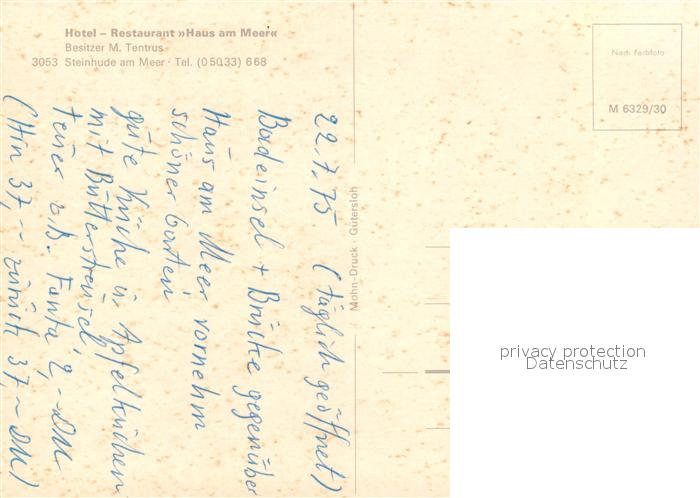 Hotel – Restaurant »Haus am Meer«
Besitzer M. Tentrus
3053 Steinhude am Meer · Tel. (05033) 668
Nach Farbfoto
M 6329/30
Mohn-Druck · Gütersloh
22.7.75 (täglich geöffnet)
Badeinsel + Brücke gegenüber
Haus am Meer vornehm
schöner Garten
gute Küche u. Apfelkuchen
mit Butterstreusel
teuer z.B. Fanta 2,- DM
(Hin 37,- zurück 37,- DM)
privacy protection
Datenschutz